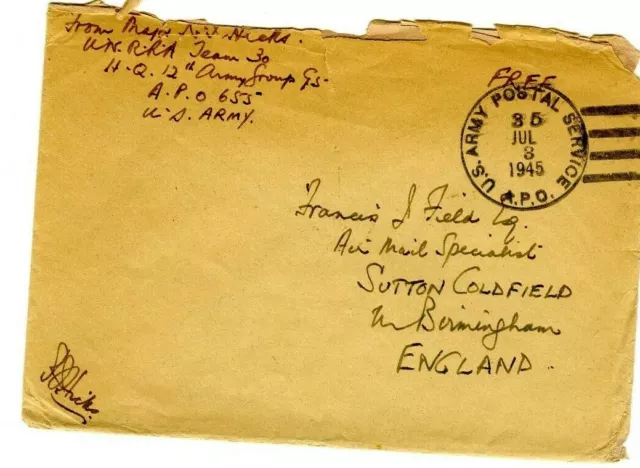 from Major Hicks.
U.N.R.R.A Team 30
H.Q. 12th Army Group G5
A.P.O 655
U.S. ARMY.
FREE
U.S. ARMY POSTAL SERVICE
35
JUL
3
1945
A.P.O.
Francis J Field Esq.
Air Mail Specialist
SUTTON COLDFIELD
Nr Birmingham
ENGLAND.
Hicks.